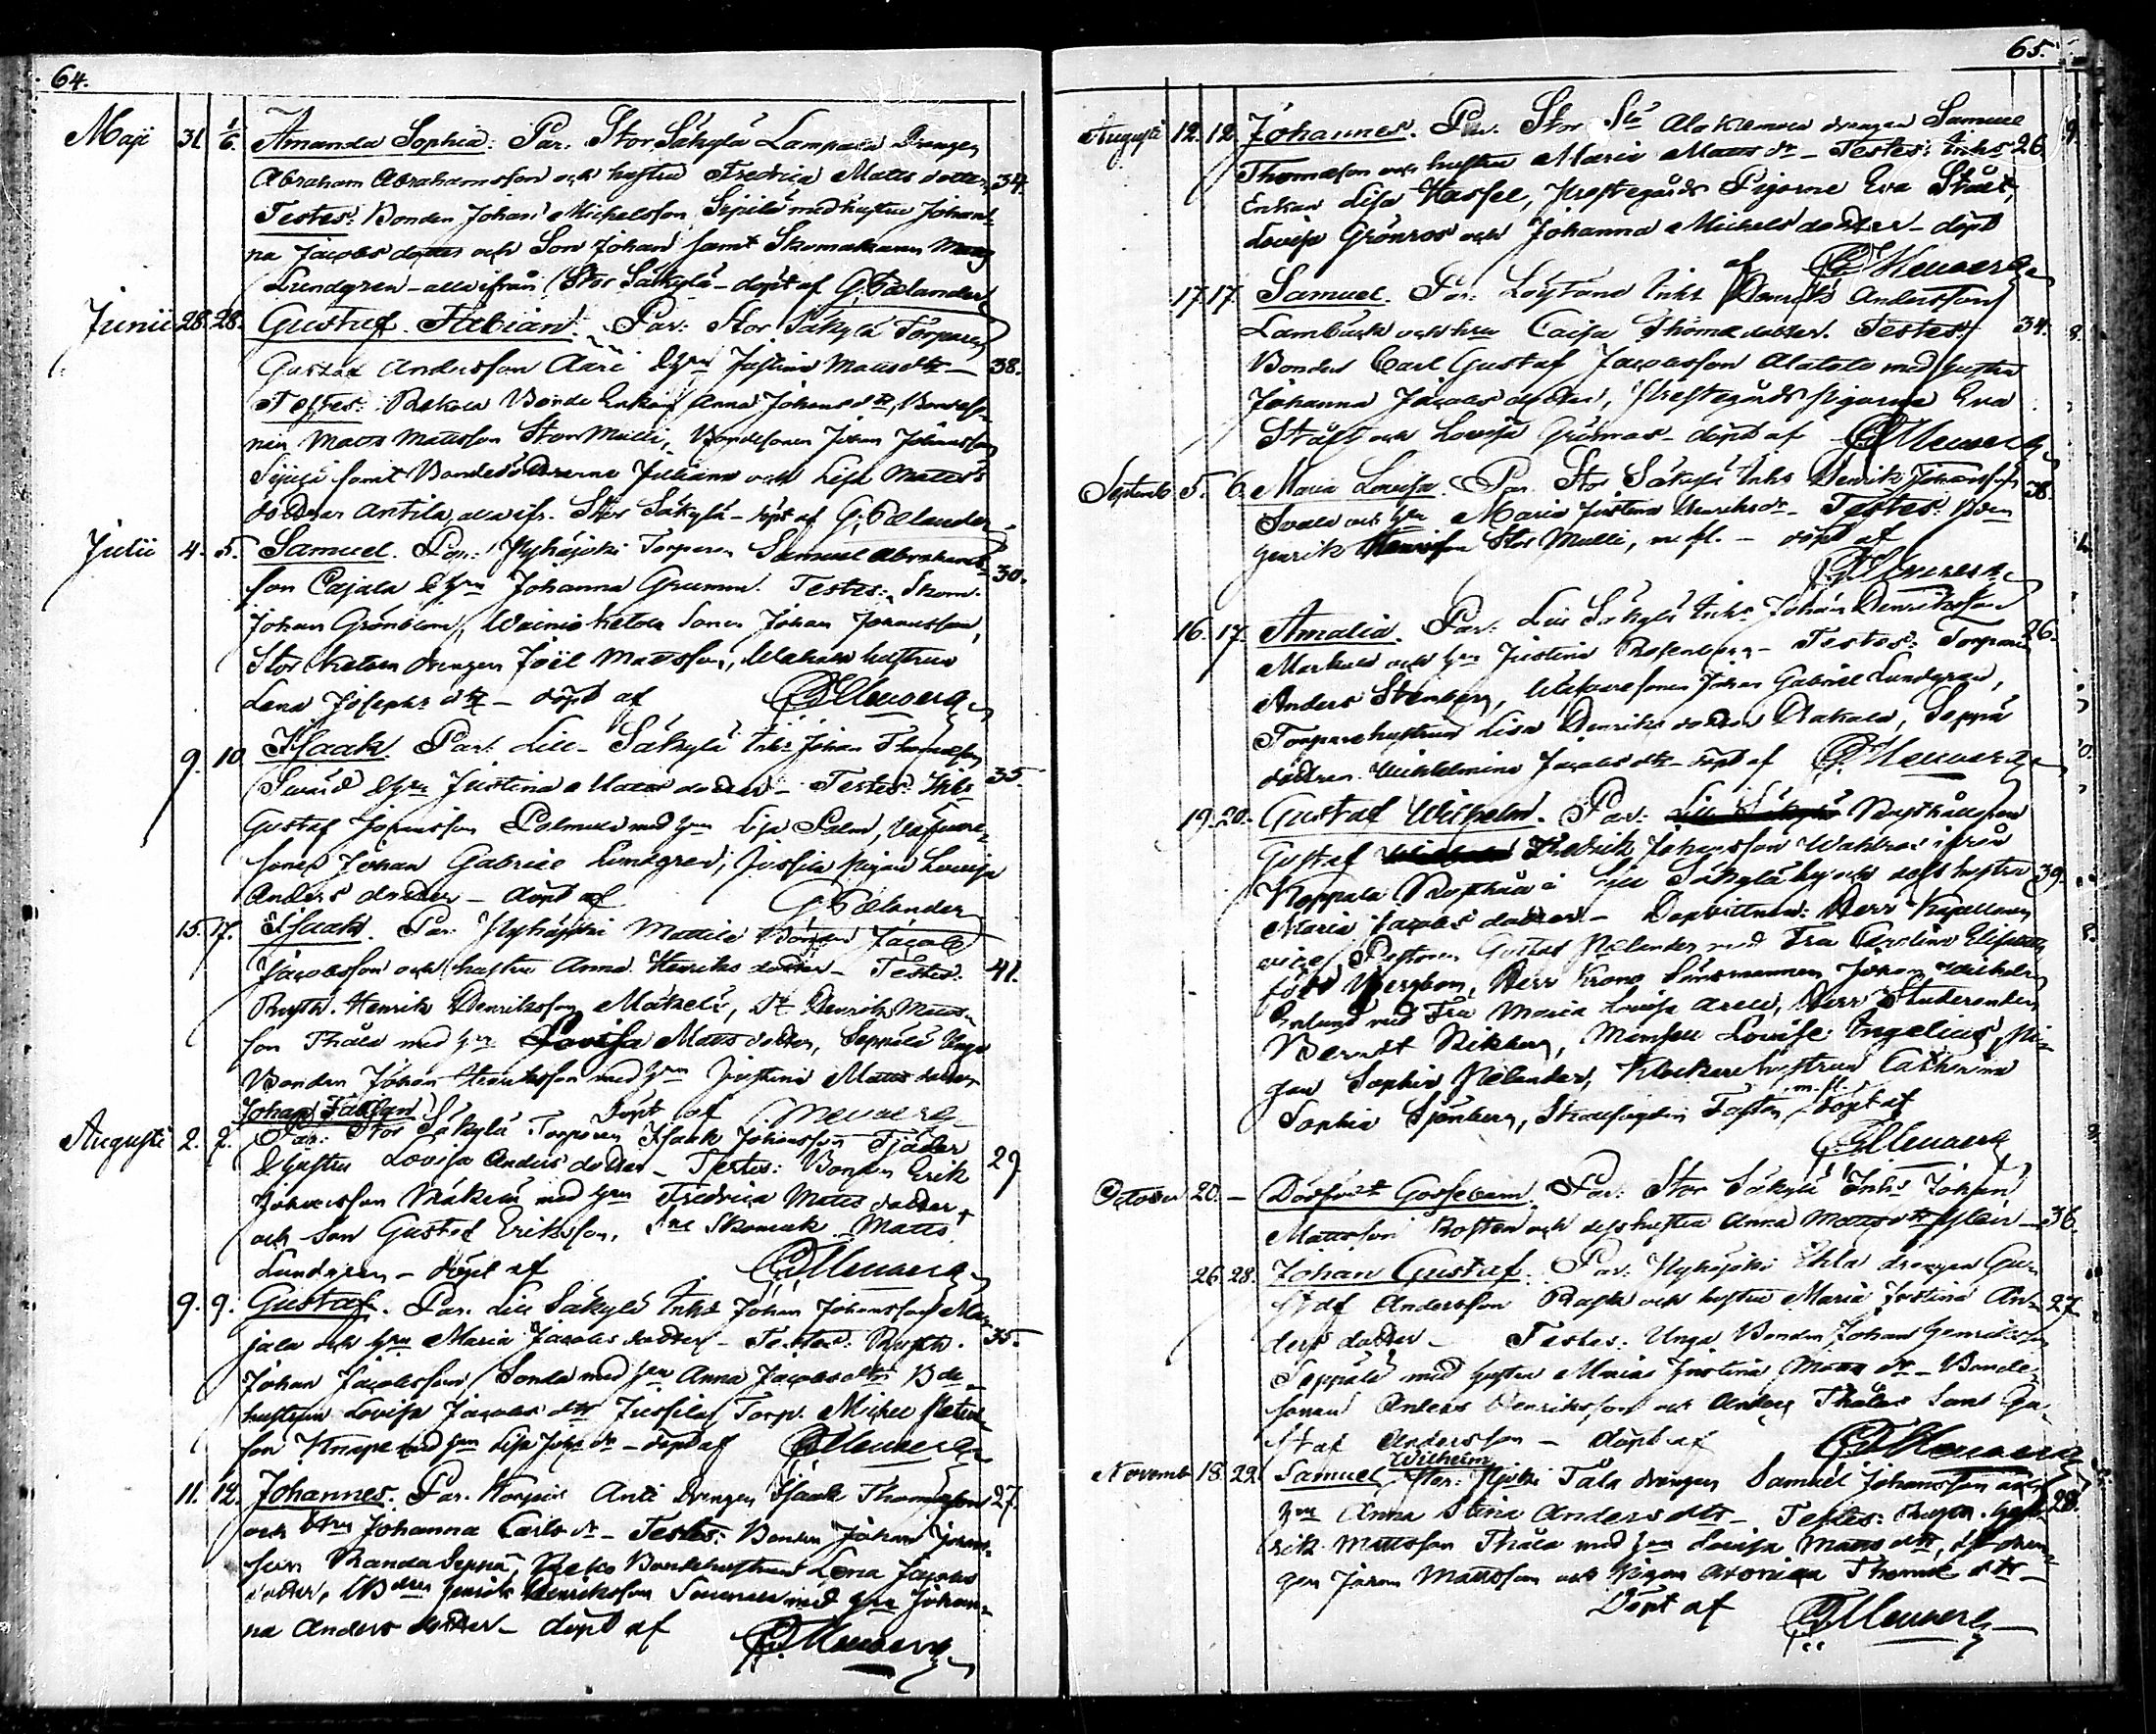 64.
Maji 31 1/6. Amanda Sophia: Par. Stor Säkylä Lampala Drengen
Abraham Abrahamsson och hustru Fredrica Matts dotter 34.
Testes: Bonden Johan Michelsson Sipilä med hustru Johan-
na Jacobs dotter och Son Johan samt Skomakaren
Lundgren - alla ifrån Stor Säkylä - döpt af G. Pælander
Junii 28. 28. Gustaf Fabian. Par: Stor Säkylä Torparen
Gustaf Andersson Aari & hru Justina Mattsdtr - 38.
Testes: Bonde Enkan Anna Johansdtr, Bondeso-
nen Matts Mattsson Stor Mulli, Bondesonen Johan Johansson
Sipilä samt Bondedöttrarne Juliana och Lisa Matts
döttrar Antila, alla ifr. Stor Säkylä - döpt af G. Pælander
Julii 4. 5. Samuel. Par: Pyhäjoki Torparen Samuel Abrahams-
son Cajala & hru Johanna Grumm. Testes: Skom. 30.
Johan Grönblom, Wainio Ketola Sonen Johan Johansson,
Stor Ketola drengen Joël Mattsson, hustrun
Lena Josephs dtr - döpt af
9. 10. Isaak. Par: Lill-Säkylä Inhs Johan Thomasson
Swärd & hru Justina Matts dotter - Testes: Inhs 35.
Gustaf Johansson med hru Lisa Palm,
sonen Johan Gabriel Lundgren, Jussila pigan Lovisa
Anders dotter - döpt af G. Pælander
15. 17. Isaak. Par: Pyhäjoki Mattila Bonden Jacob
Jacobsson och hustru Anna Henriks dotter - Testes: 41.
Rusth. Henrik Henriksson Mäkelä, Dr Henrik Matts-
son Thåla med hru Lovisa Matts dotter, Seppälä Unga
Bonden Johan Henriksson med hru Justina Matts dotter
Johan Fabian Döpt af
Augusti 2. 2. Par: Stor Säkylä Torparen Isaak Johansson Tjäder
& hustru Lovisa Anders dotter - Testes: Bonden Erik 29
Johansson Mäkelä med hru Fredrica Matts dotter
och Son Gustaf Eriksson, Skomak. Matts
Lundgren - döpt af
9. 9. Gustaf. Par. Lill Säkylä Inhs Johan Johansson
jala och hru Maria Jacobs dotter - Testes: Rusth. 35.
Johan Jacobsson Sonda med hru Anna Jacobsdtr Bde-
hustrun Lovisa Jacobs dtr Jussila, Torp. Michel
son Knape med hru Lisa Joh: dr - döpt af
11. 12. Johannes. Par. Anti Drengen Isaak Thomasson 27.
och hru Johanna Carls dr - Testes: Bonden Johan Johans-
son Seppä, Bondehustrun Lena Jacobs
dotter, Bden Henrik Henriksson med hru Johan-
na Anders dotter - döpt af
65.
Augusti 12. 12. Johannes. Par. Stor drengen Samuel
Thomasson och hustru Maria Matts dr - Testes: Inhs 26.
Enkan Lisa Hassel, Prestegårds Pigorne Eva Stält,
Lovisa Grönroos och Johanna Michels dotter - döpt
af
17. 17. Samuel. Par: Löytäne Inhs Henrik Andersson
och hru Caisa Thomæ dotter. Testes: 34.
Bonden Carl Gustaf Jacobsson Alatalo med hustru
Johanna Jacobs dotter, Prestegårds pigorna Eva
Stält och Lovisa Grönroos - döpt af
Septemb 5. 6. Maria Lovisa. Par. Stor Säkylä Inhs Henrik Johansson 38.
och hru Maria Justina Henriks dr - Testes: Bden
Henrik Stor Mulli, m. fl. - döpt af
16. 17. Amalia. Par: Lill Säkylä Inhs Johan Henriksson 26.
Markula och hru Justina Rosenberg - Testes: Torparen
Anders Stenberg, sonen Johan Gabriel Lundgren,
Torparehustrun Lisa Henriks dotter Seppä
dottren Wilhelmina Jacobs dtr - döpt af
19. 20. Gustaf Wilhelm. Par: Rusthållaren
Gustaf Fredrik Johansson Wahlroos ifrån
Hoppala Rusthåll i Lill Säkylä by och dess hustru 39.
Maria Jacobs dotter - Dopvittnen: Herr Kapellanen
vice Pastoren Gustaf Pælander med Fru Carolina Elisabeth
född Bergbom, Herr Krono Länsmannen Johan Wilhelm
med Fru Maria Lovisa Herr Studeranden
Berndt Rikberg, Mamsell Lovise Ingelius, Pi-
gan Sophia Pælander, Klockare hustrun Catharina
Sophia Sjönberg, m. fl. - döpt af
October 20. - Dödfödt Gossebarn. Par: Stor Säkylä Inhs Johan
Mattsson Rosten och dess hustru Anna Mattsdtr - 36
26. 28. Johan Gustaf. Par: Pyhäjoki drengen Gu-
staf Andersson Rask och hustru Maria Justina An- 27
ders dotter - Testes: Unga Bonden Johan Henriksson
Seppälä med hustru Maria Justina Matts dr - Bonde-
sonen Anders Henriksson och Anders Thåla samt Gu-
staf Andersson - döpt af
Novemb 18. 22. Samuel Wilhelm Par: Pjoki Tåla drengen Samuel Johansson och
hru Anna Stina Anders dtr - Testes: Rusth. Hen- 28.
rik Mattsson Thåla med hru Lovisa Matts dtr, dren-
gen Johan Mattsson och pigan Thomæ dtr -
Döpt af